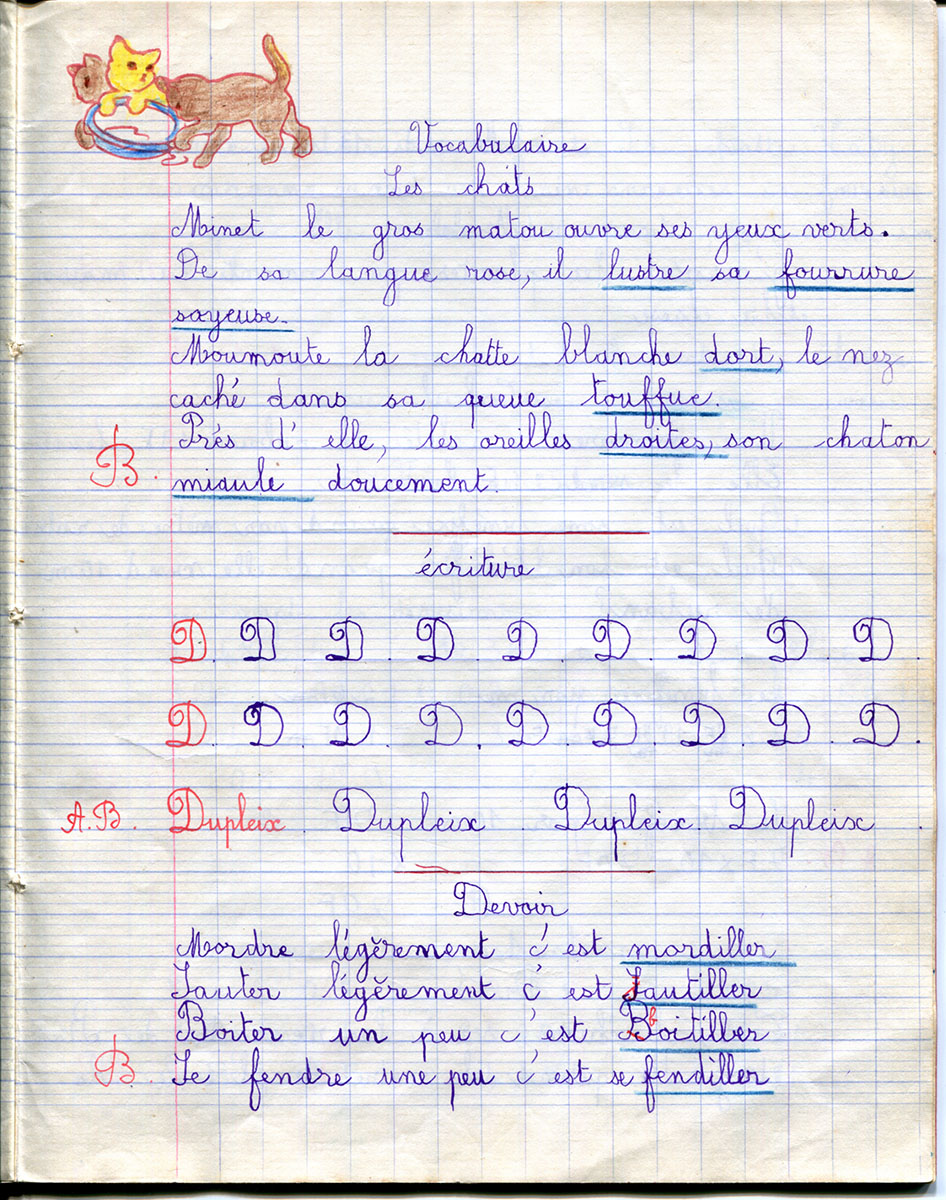 Vocabulaire
Les chats
Minet le gros matou ouvre ses yeux verts.
De sa langue rose, il lustre sa fourrure
soyeuse.
Moumoute la chatte blanche dort, le nez
caché dans sa queue touffue.
Près d'elle, les oreilles droites, son chaton
B. miaule doucement.
écriture
D. D. D. D. D. D. D. D. D.
D. D. D. D. D. D. D. D. D.
A.B. Dupleix. Dupleix. Dupleix. Dupleix.
Devoir
Mordre légèrement c'est mordiller
Sauter légèrement c'est sautiller
Boiter un peu c'est boitiller
B. Se fendre une peu c'est se fendiller